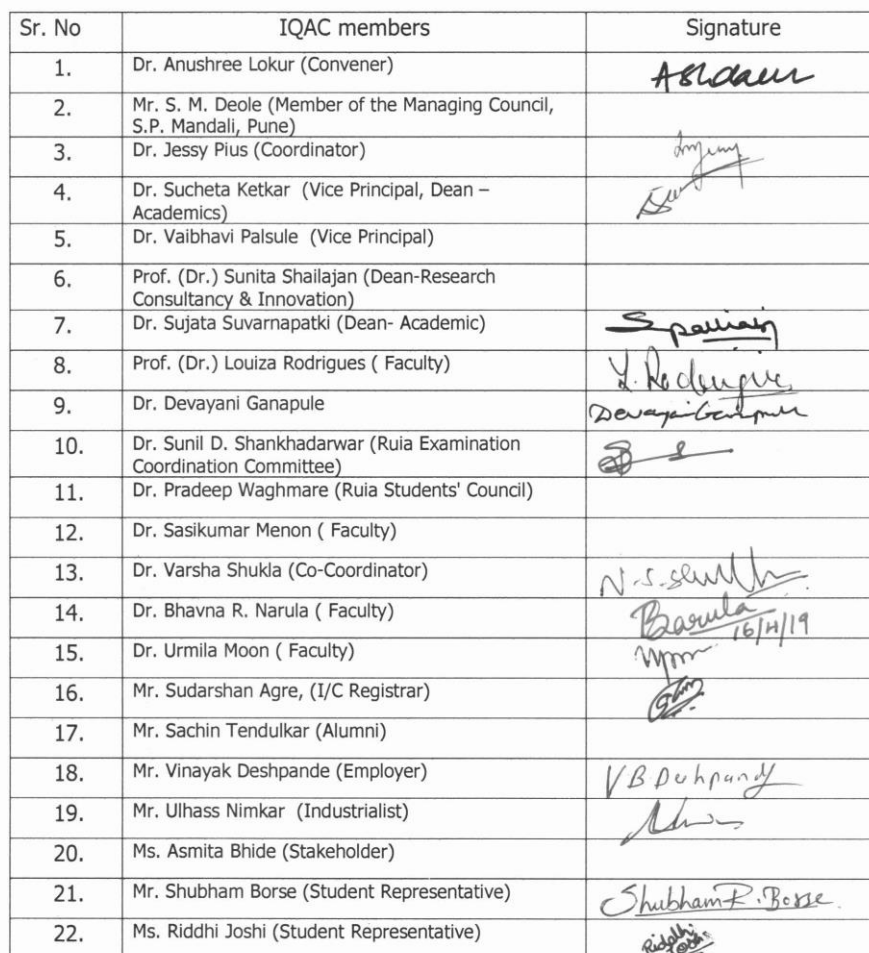 Sr. No IQAC members Signature
1. Dr. Anushree Lokur (Convener)
2. Mr. S. M. Deole (Member of the Managing Council,
S.P. Mandali, Pune)
3. Dr. Jessy Pius (Coordinator)
4. Dr. Sucheta Ketkar (Vice Principal, Dean –
Academics)
5. Dr. Vaibhavi Palsule (Vice Principal)
6. Prof. (Dr.) Sunita Shailajan (Dean-Research
Consultancy & Innovation)
7. Dr. Sujata Suvarnapatki (Dean- Academic)
8. Prof. (Dr.) Louiza Rodrigues ( Faculty) L. Rodrigues
9. Dr. Devayani Ganapule
10. Dr. Sunil D. Shankhadarwar (Ruia Examination
Coordination Committee)
11. Dr. Pradeep Waghmare (Ruia Students' Council)
12. Dr. Sasikumar Menon ( Faculty)
13. Dr. Varsha Shukla (Co-Coordinator)
14. Dr. Bhavna R. Narula ( Faculty)
16/4/19
15. Dr. Urmila Moon ( Faculty)
16. Mr. Sudarshan Agre, (I/C Registrar)
17. Mr. Sachin Tendulkar (Alumni)
18. Mr. Vinayak Deshpande (Employer)
19. Mr. Ulhass Nimkar (Industrialist)
20. Ms. Asmita Bhide (Stakeholder)
21. Mr. Shubham Borse (Student Representative) Shubham R. Borse
22. Ms. Riddhi Joshi (Student Representative) Riddhi Joshi